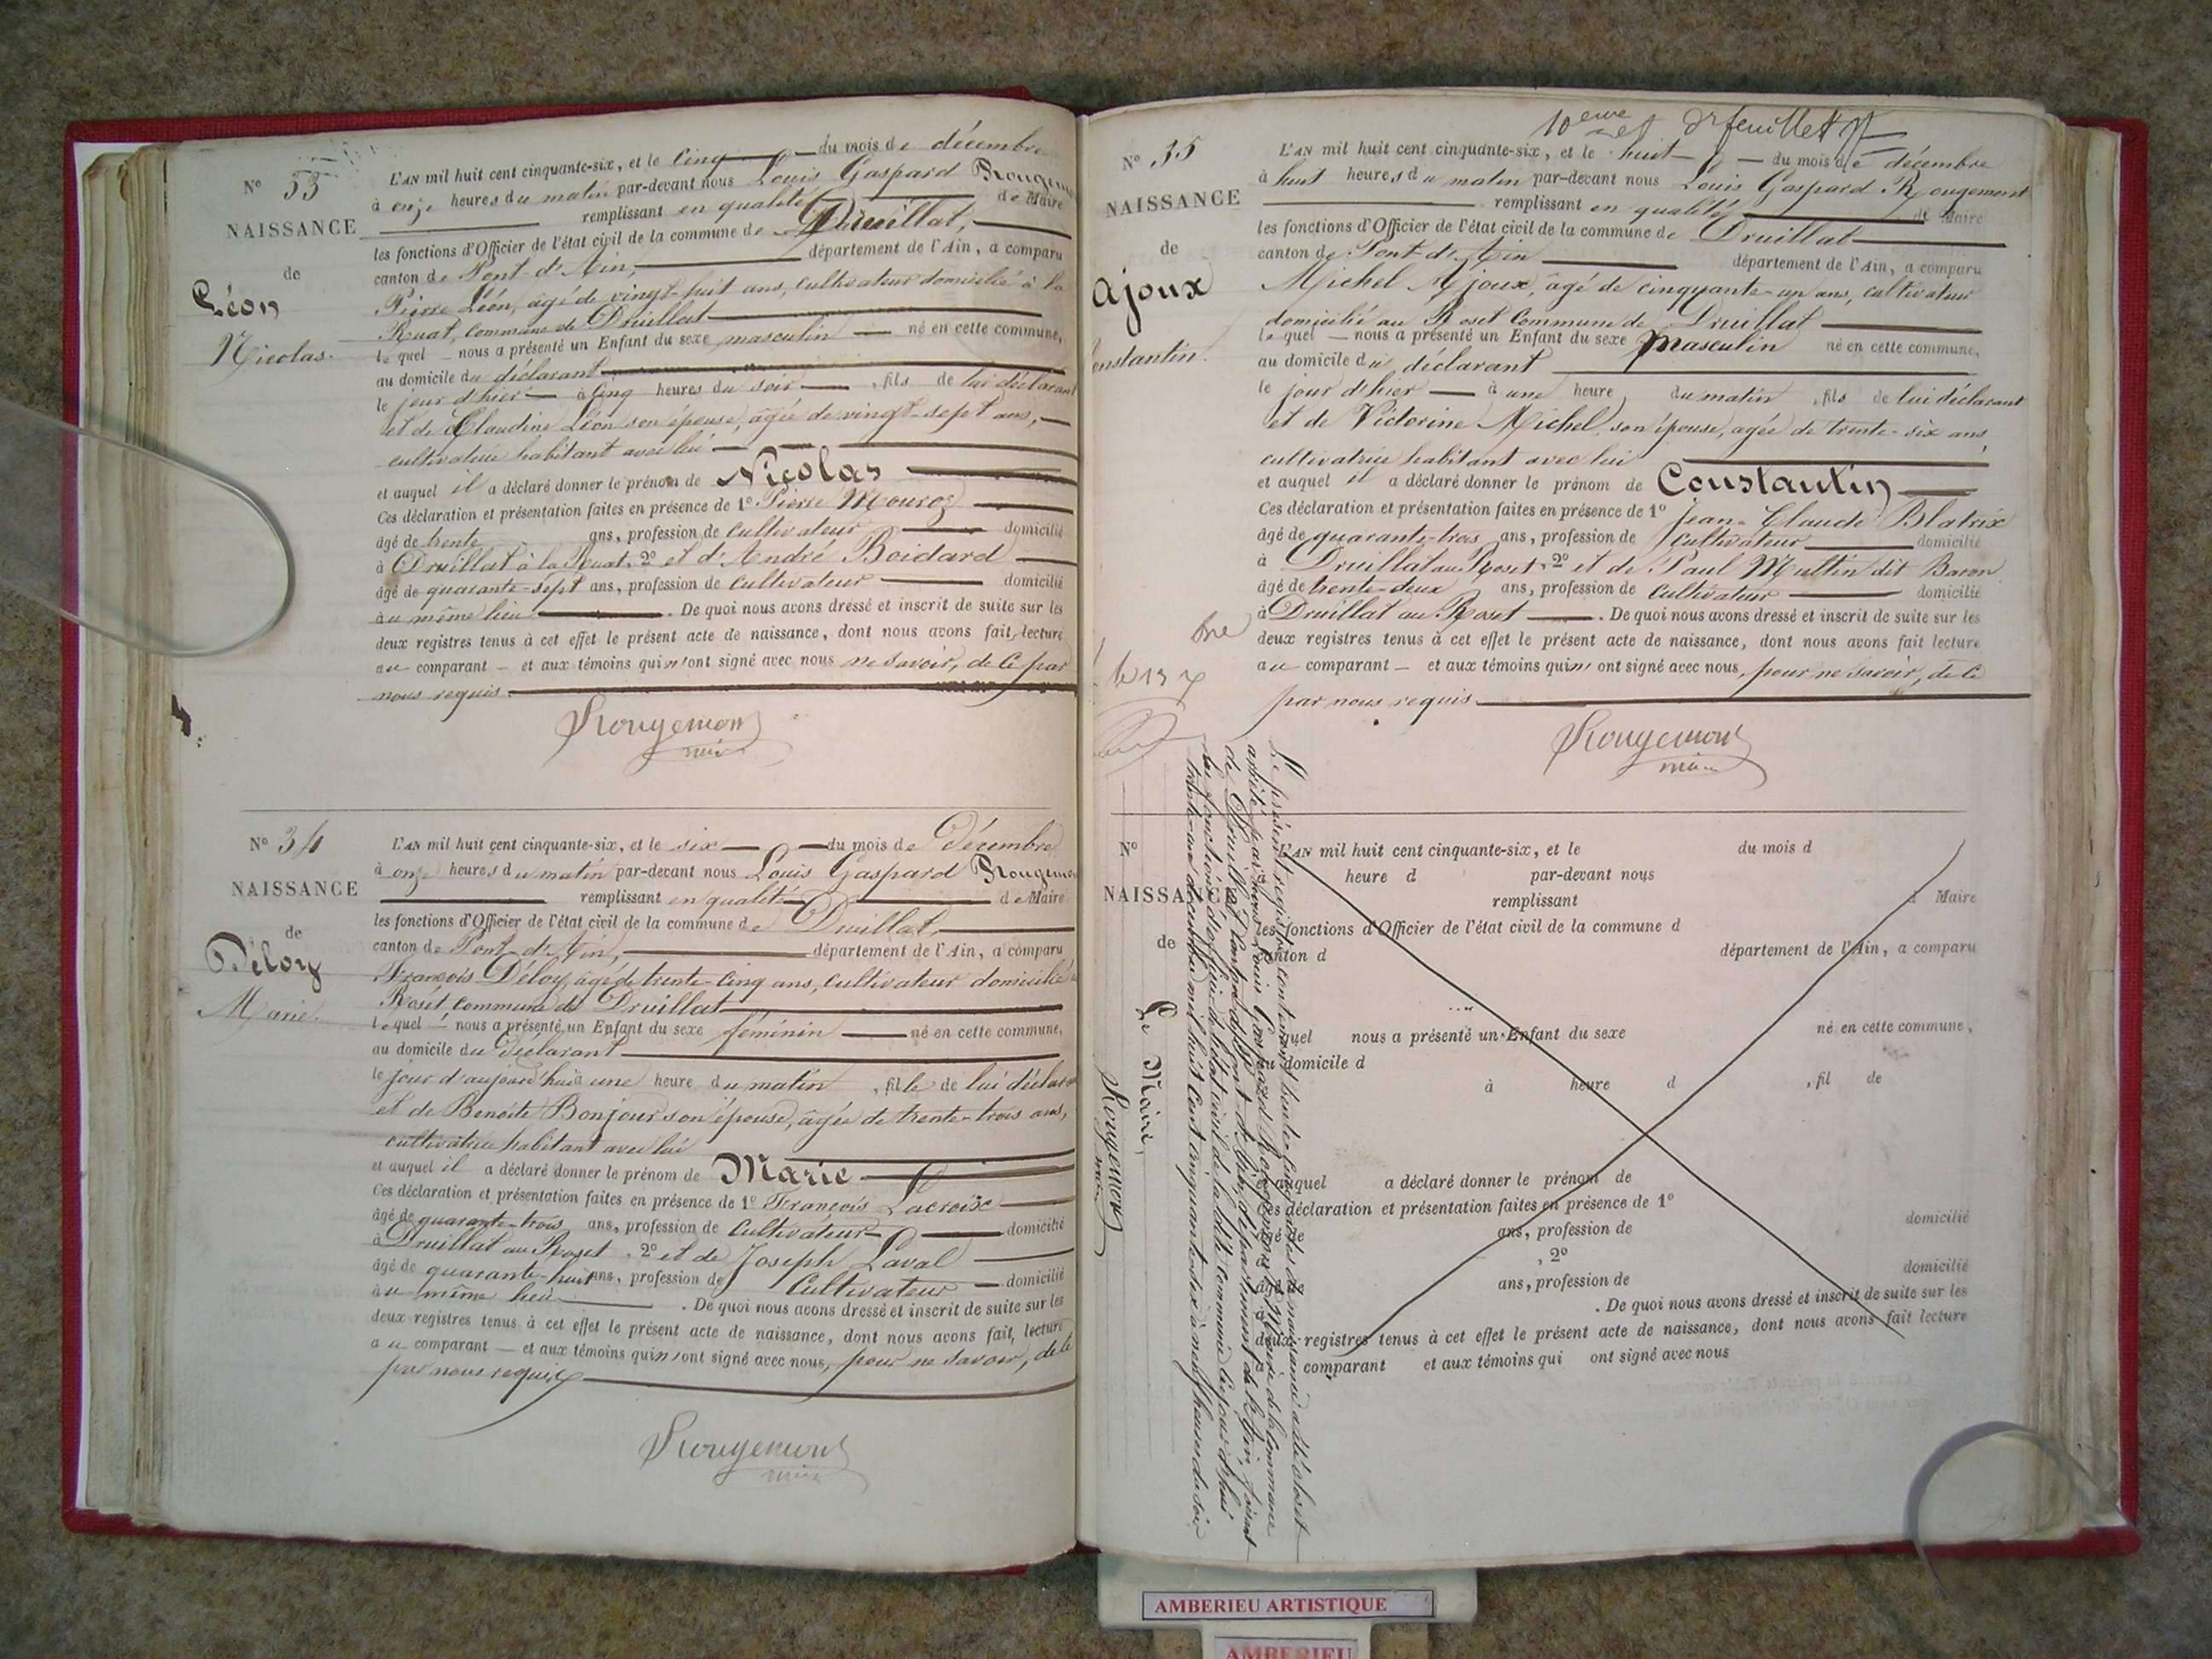 N° 33
NAISSANCE
de
Léon
Nicolas.
L'AN mil huit cent cinquante-six, et le cinq du mois de décembre
à onze heures du matin par-devant nous Louis Gaspard Rougemont
remplissant en qualité de Maire
les fonctions d'Officier de l'état civil de la commune de Druillat,
canton de Pont-d'Ain, département de l'Ain, a comparu
Pierre Léon, âgé de vingt-huit ans, cultivateur domicilié à la
Ruat, commune de Druillat
lequel nous a présenté un Enfant du sexe masculin né en cette commune,
au domicile du déclarant
le jour d'hier à cinq heures du soir, fils de lui déclarant
et de Claudine Léon son épouse, âgée de vingt-sept ans,
cultivateur habitant avec lui
et auquel il a déclaré donner le prénom de Nicolas
Ces déclaration et présentation faites en présence de 1° Pierre Mouroz
âgé de trente ans, profession de cultivateur domicilié
à Druillat à la Ruat, 2° et d'André Boidard
âgé de quarante-sept ans, profession de cultivateur domicilié
au même lieu. De quoi nous avons dressé et inscrit de suite sur les
deux registres tenus à cet effet le présent acte de naissance, dont nous avons fait lecture
au comparant et aux témoins qui n'ont signé avec nous ne savoir, de ce par
nous requis.
Rougemont
N° 34
NAISSANCE
de
Déloy
Marie.
L'AN mil huit cent cinquante-six, et le six du mois de Décembre
à onze heures du matin par-devant nous Louis Gaspard Rougemont
remplissant en qualité de Maire
les fonctions d'Officier de l'état civil de la commune de Druillat,
canton de Pont-d'Ain, département de l'Ain, a comparu
François Déloy, âgé de trente-cinq ans, cultivateur domicilié
Roset commune de Druillat
lequel nous a présenté un Enfant du sexe féminin né en cette commune,
au domicile du déclarant
le jour d'aujourd'hui à une heure du matin, fille de lui déclarant
et de Benoite Bonjour son épouse, âgée de trente-trois ans,
cultivatrice habitant avec lui
et auquel il a déclaré donner le prénom de Marie
Ces déclaration et présentation faites en présence de 1° François Lacroix
âgé de quarante-trois ans, profession de cultivateur domicilié
à Druillat au Roset, 2° et de Joseph Laval
âgé de quarante-huit ans, profession de Cultivateur domicilié
au même lieu. De quoi nous avons dressé et inscrit de suite sur les
deux registres tenus à cet effet le présent acte de naissance, dont nous avons fait lecture
au comparant et aux témoins qui n'ont signé avec nous, pour ne savoir, de ce
par nous requis
Rougemont
10eme et dr feuillet
N° 35
NAISSANCE
de
Ajoux
Constantin.
L'AN mil huit cent cinquante-six, et le huit du mois de décembre
à huit heures du matin par-devant nous Louis Gaspard Rougemont
remplissant en qualité de Maire
les fonctions d'Officier de l'état civil de la commune de Druillat
canton de Pont-d'Ain département de l'Ain, a comparu
Michel Ajoux, âgé de cinquante-un ans, cultivateur
domicilié au Roset Commune de Druillat
lequel nous a présenté un Enfant du sexe Masculin né en cette commune,
au domicile du déclarant
le jour d'hier à une heure du matin, fils de lui déclarant
et de Victorine Michel son épouse, âgée de trente-six ans,
cultivatrice habitant avec lui
et auquel il a déclaré donner le prénom de Constantin
Ces déclaration et présentation faites en présence de 1° Jean-Claude Blatrix
âgé de quarante-trois ans, profession de Cultivateur domicilié
à Druillat au Roset, 2° et de Paul Multin dit Baron
âgé de trente-deux ans, profession de Cultivateur domicilié
à Druillat au Roset. De quoi nous avons dressé et inscrit de suite sur les
deux registres tenus à cet effet le présent acte de naissance, dont nous avons fait lecture
au comparant et aux témoins qui n'ont signé avec nous, pour ne savoir, de ce
par nous requis
Rougemont
N°
NAISSANCE
de
L'AN mil huit cent cinquante-six, et le du mois d
heure d par-devant nous
remplissant d Maire
les fonctions d'Officier de l'état civil de la commune d
canton d département de l'Ain, a comparu
quel nous a présenté un Enfant du sexe né en cette commune,
au domicile d
à heure d, fil de
auquel a déclaré donner le prénom de
Ces déclaration et présentation faites en présence de 1°
âgé de ans, profession de domicilié
à, 2°
âgé de ans, profession de domicilié
à. De quoi nous avons dressé et inscrit de suite sur les
deux registres tenus à cet effet le présent acte de naissance, dont nous avons fait lecture
a comparant et aux témoins qui ont signé avec nous
Le présent registre contenant trente-cinq actes de naissance a été clos et
arrêté par nous Louis Gaspard Rougemont Maire de la commune
de Druillat canton de Pont-d'Ain, département de l'Ain, faisant
les fonctions d'officier de l'état civil de la dite commune ce jour d'hui
trente-un décembre mil huit cent cinquante-six à neuf heures du soir
Le Maire,
Rougemont
AMBERIEU ARTISTIQUE
AMBERIEU